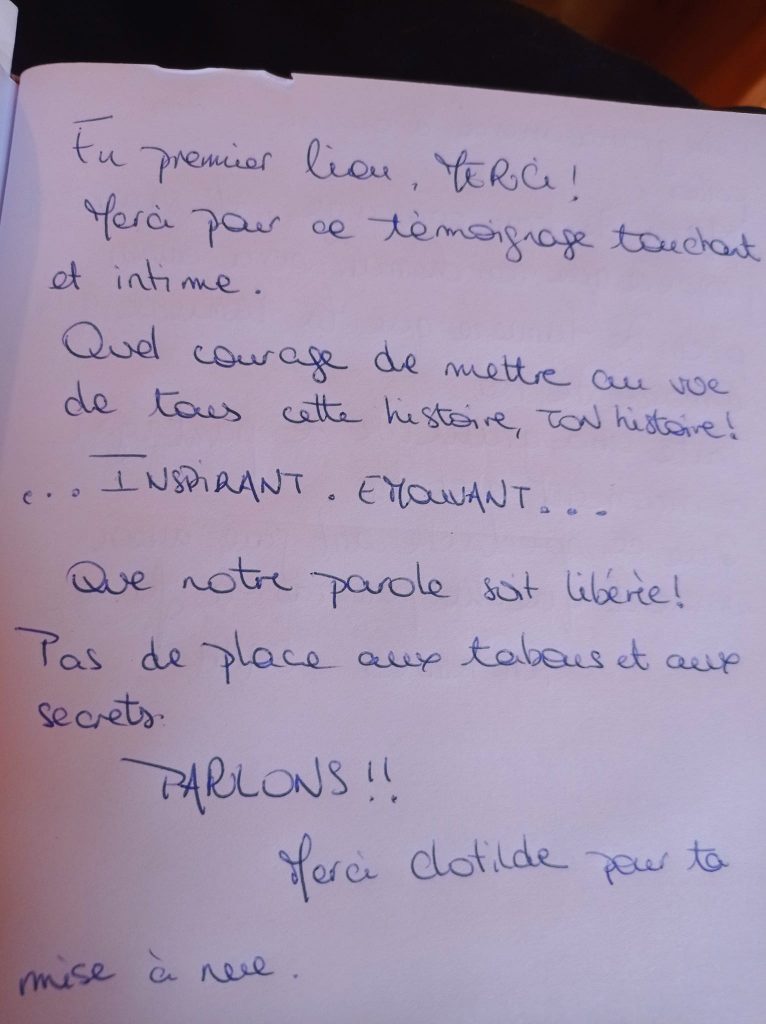 En premier lieu, MERCi !
Merci pour ce témoignage touchant
et intime.
Quel courage de mettre au vue
de tous cette histoire, TON histoire !
... INSPIRANT. EMOUVANT...
Que notre parole soit libérée !
Pas de place aux tabous et aux
secrets.
PARLONS !!
Merci Clotilde pour ta
mise à nue.